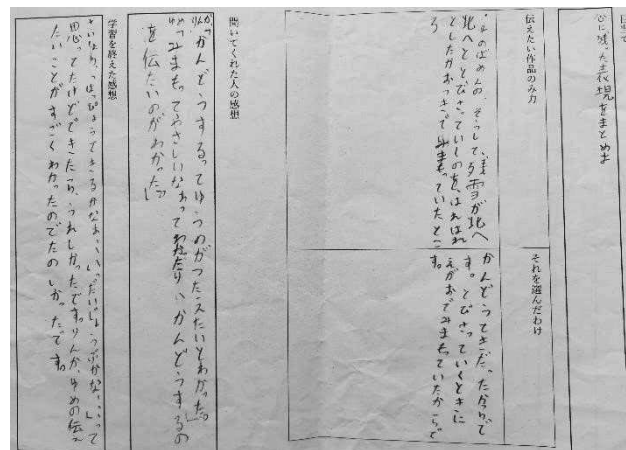 心に残った表現をまとめよ
伝えたい作品のみ力
そして、残雪が北へ
北へととびさっていくのを、はればれ
としたかおつきで見まもっていたとこ
ろ
それを選んだわけ
かんどうてきだったからで
す。とびさっていくときに
えがおでみまもっていたからで
す。
聞いてくれた人の感想
「かんどうするってゆうのがつたえたいとわかった。」
「みまもってやさしいなぁって
かんどうするの
を伝たいのがわかった。」
学習を終えた感想
さいしょ、はっぴょうできるかなぁ、、、だいじょうぶかな、、、って
思ってたけどできたら、うれしかったです。りんか、ゆめの伝え
たいことがすごくわかったのでたのしかったです。